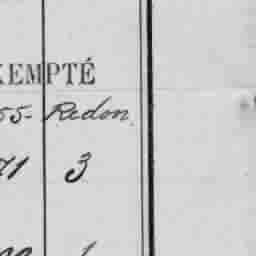 KEMPTÉ
55- Redon
71 3